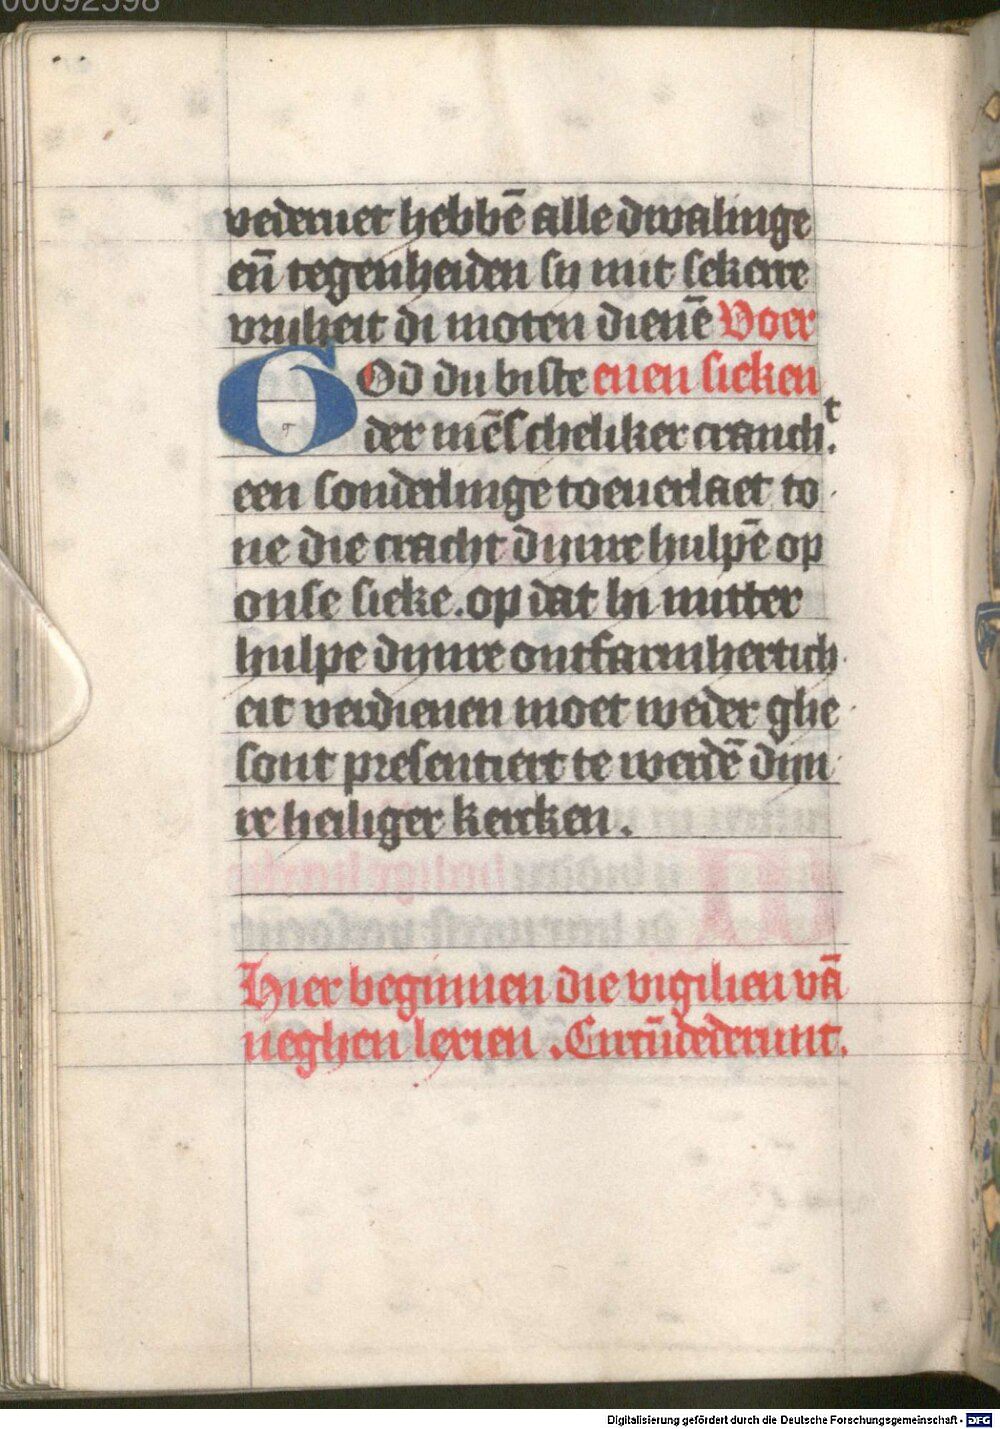 00092598
vederuet hebbē alle dwalinge
eñ tegenheiden sy mit sekerre
vriheit di moten dienē Voer
GOd du biste enen sieken
der mēscheliker cranch.t
een sonderlinge toeuerlaet to
ne die cracht dynre hulpē op
onse sieke. op dat hy mitter
hulpe dynre ontfarmhertich
eit verdienen moet weder ghe
sont presentiert te werdē dyn
re heiliger kercken.
Hier beginnen die vigilien vā
neghen lexien. Circūdederunt.
Digitalisierung gefördert durch die Deutsche Forschungsgemeinschaft - DFG